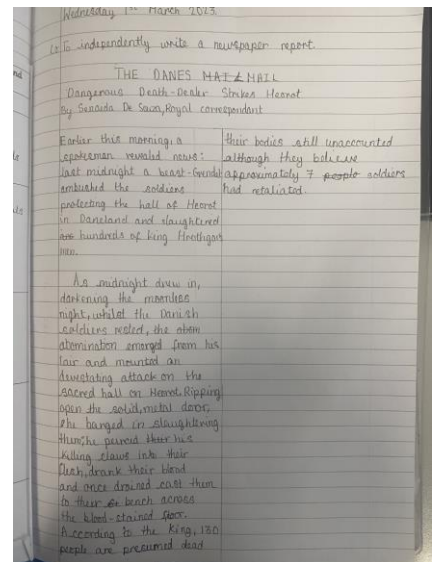 Wednesday 1st March 2023
Lo To independently write a newspaper report.
THE DANES MAIL MAIL
Dangerous Death-Dealer Strikes Heorot
By Senaida De Sousa, Royal correspondant
Earlier this morning, a
spokesman revealed news:
last midnight a beast-Grendel
ambushed the soldiers
protecting the hall of Heorot
in Daneland and slaughtered
hundreds of King Hrothgar
men.
As midnight drew in,
darkening the moonless
night, whilst the Danish
soldiers rested, the abom
abomination emerged from his
lair and mounted an
devastating attack on the
sacred hall on Heorot. Ripping
open the solid, metal door,
he banged in slaughtering
them, he peirced their his
killing claws into their
flesh, drank their blood
and once drained cast them
to their bench across
the blood-stained floor.
According to the King, 130
people are presumed dead
their bodies still unaccounted
although they believe
approximately 7 people soldiers
had retaliated.